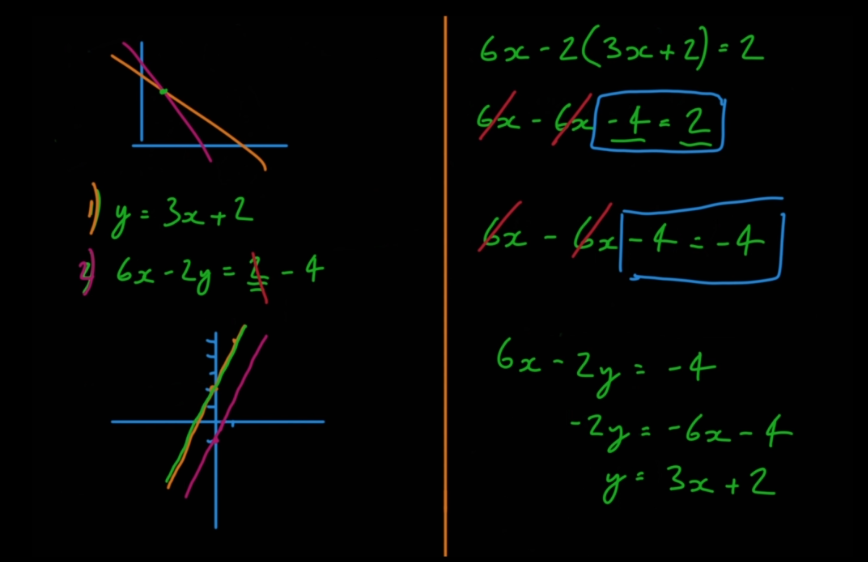 1) y = 3x + 2
2) 6x - 2y = 2 - 4
6x - 2(3x + 2) = 2
6x - 6x - 4 = 2
6x - 6x - 4 = -4
6x - 2y = -4
-2y = -6x - 4
y = 3x + 2